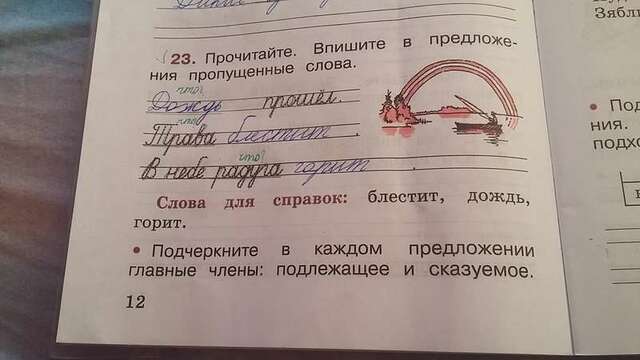 23. Прочитайте. Впишите в предложе-
ния пропущенные слова.
что?
Дождь прошёл.
что?
Трава блестит.
что?
В небе радуга горит.
Слова для справок: блестит, дождь,
горит.
• Подчеркните в каждом предложении
главные члены: подлежащее и сказуемое.
12
Зябли
• Под
ния.
подхо